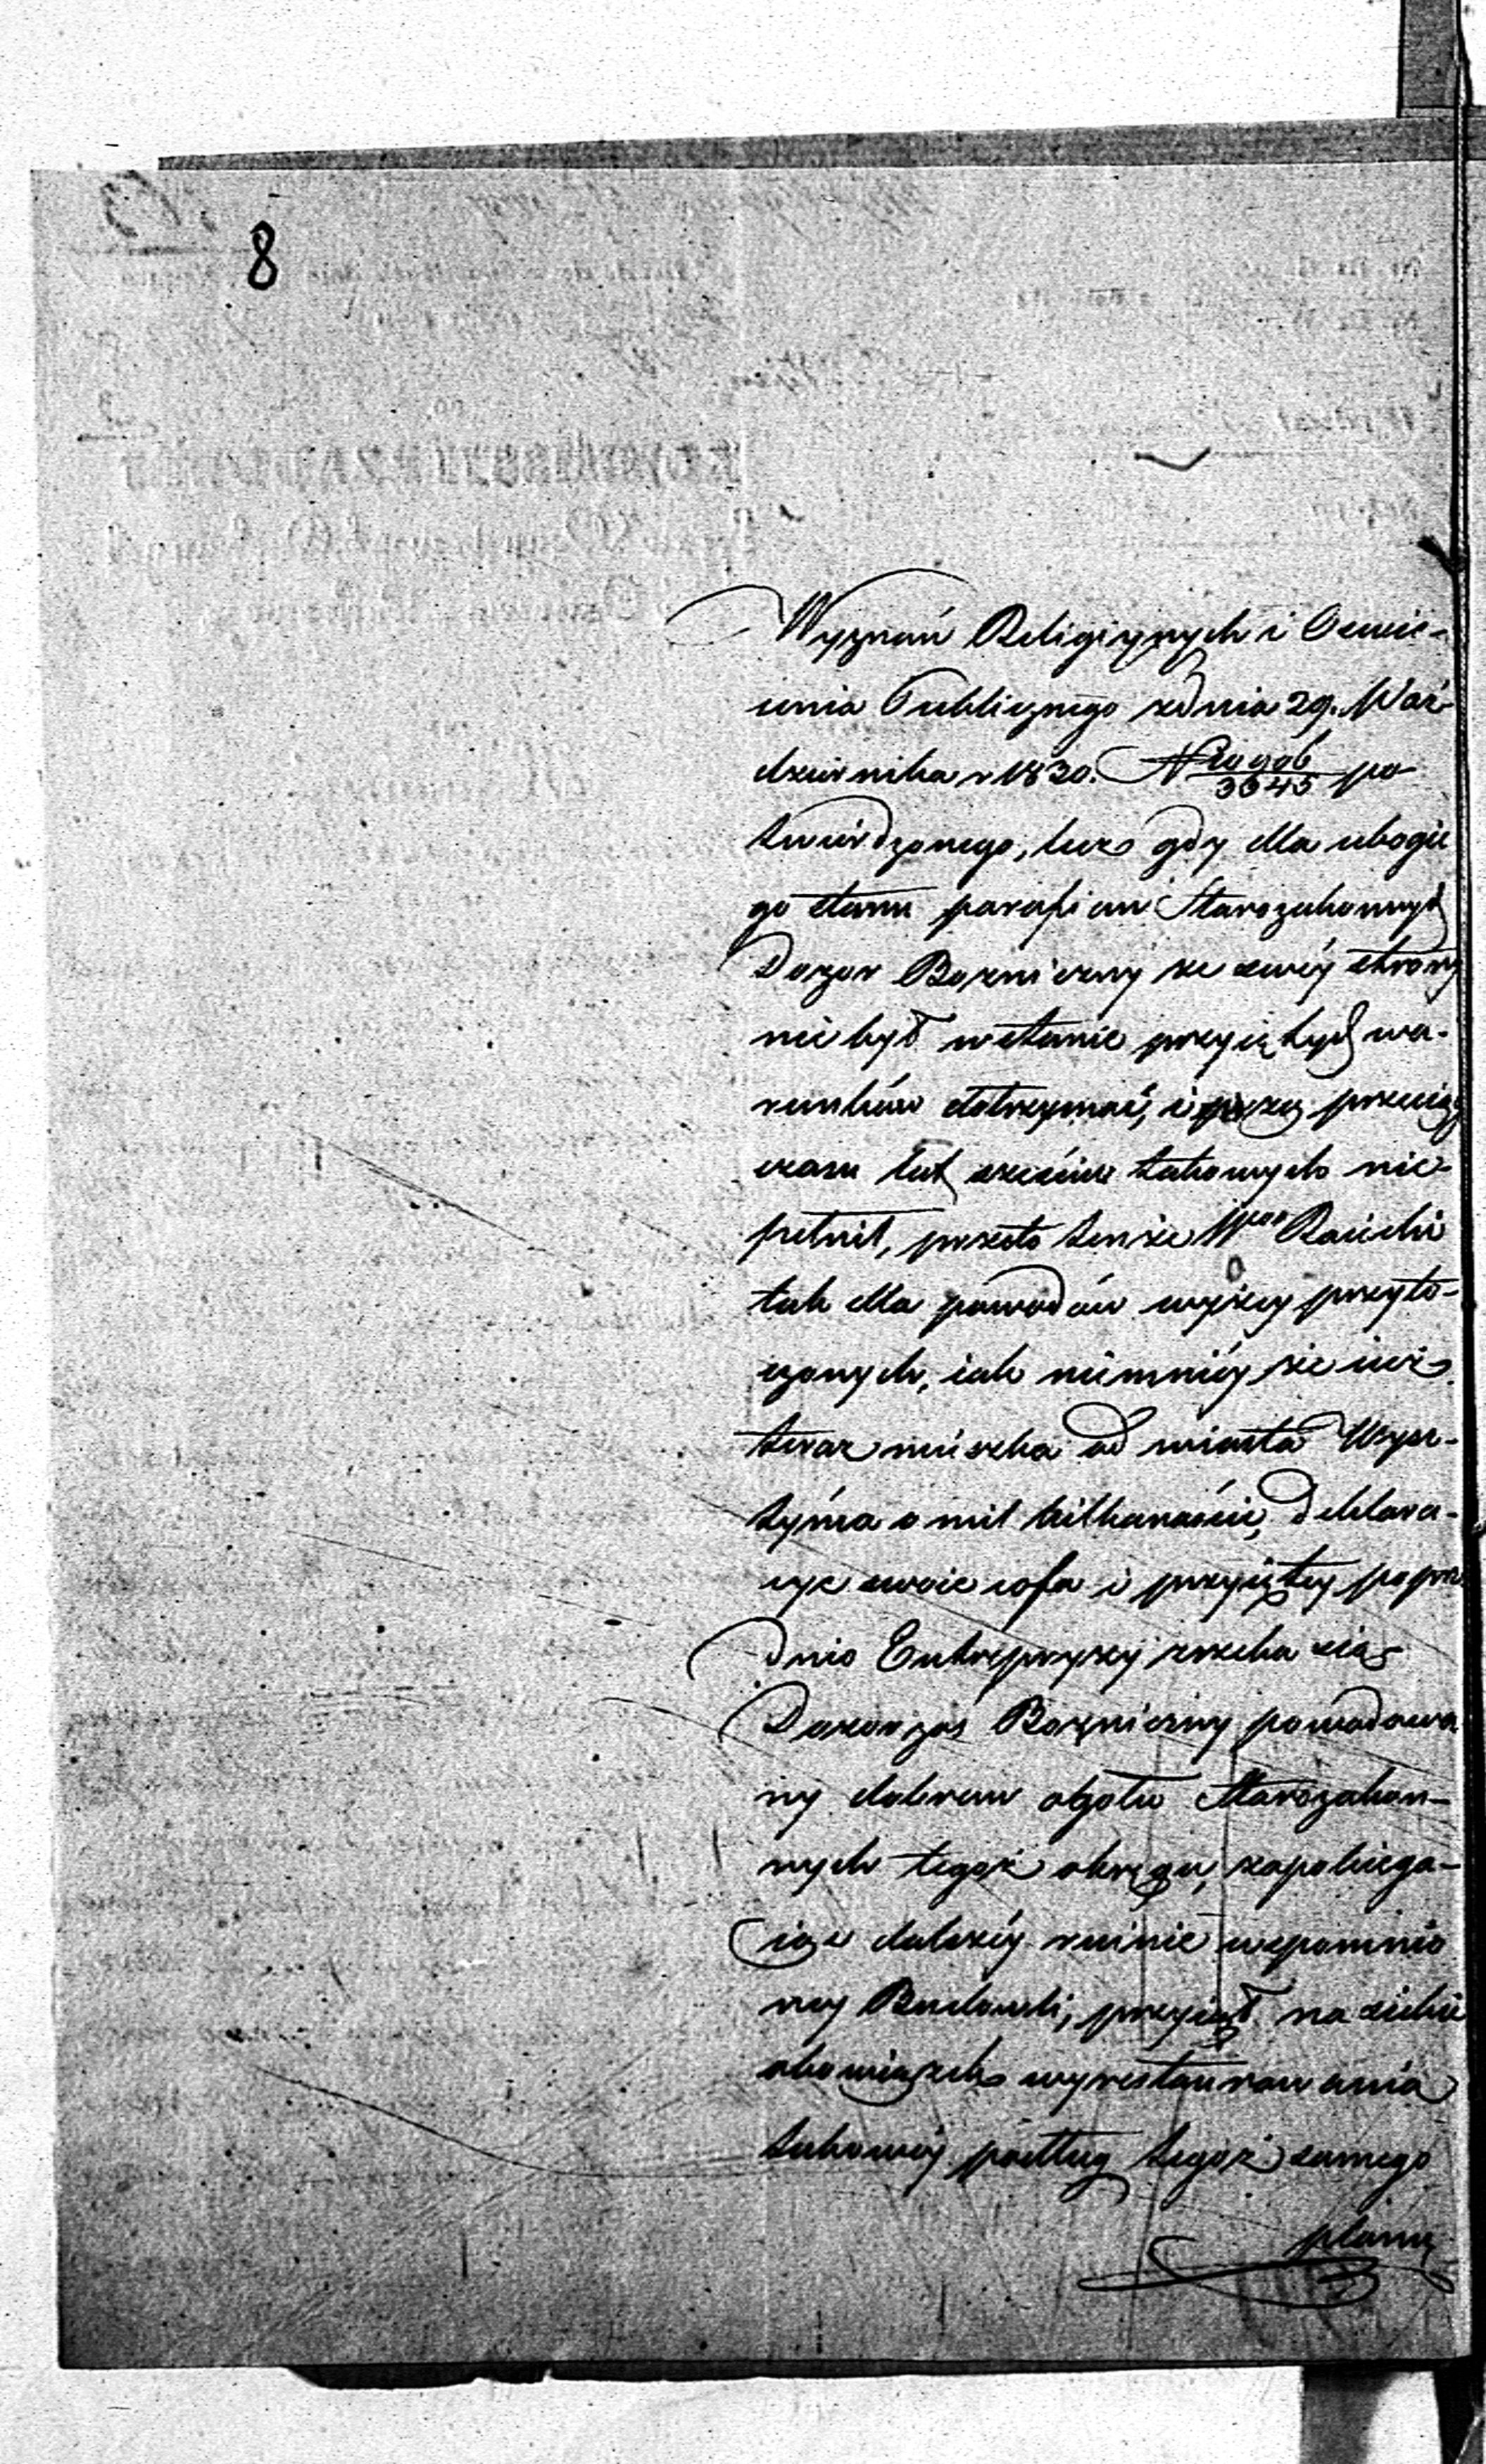 8
Wyznań Religiynych i Oświe-
cenia Publicznego z dnia 29. Paź-
dziernika r 1830. N 10906/3645 po-
twierdzonego, lecz gdy dla ubogie
go stanu parafian Starozakonnych
Dozor Bozniczny ze swéy strony
nie był wstanie przyiętych wa-
runków dotrzymać, i przez przeciąg
czasu lat sześciu takowych nie-
pełnił, przeto tenże Raiecki
tak dla powodów wyżey przyto-
czonych, iak niemniéy że iuż
teraz mieszka od miasta Wysz-
tyńca o mil kilkanaście, deklara-
cye swoie cofa i przyiętey poprze
dnio Entrepryzy zrzeka się
Dozor zaś Bozniczny powodowa
ny dobrem ogołu Starozakon-
nych tegoż okręgu, zapobiega-
iąc dalszéy ruinie wspomnio
ney Budowli, przyiął na siebie
obowiązek wyrestaurowania
takowéy podług tegoż samego
planu